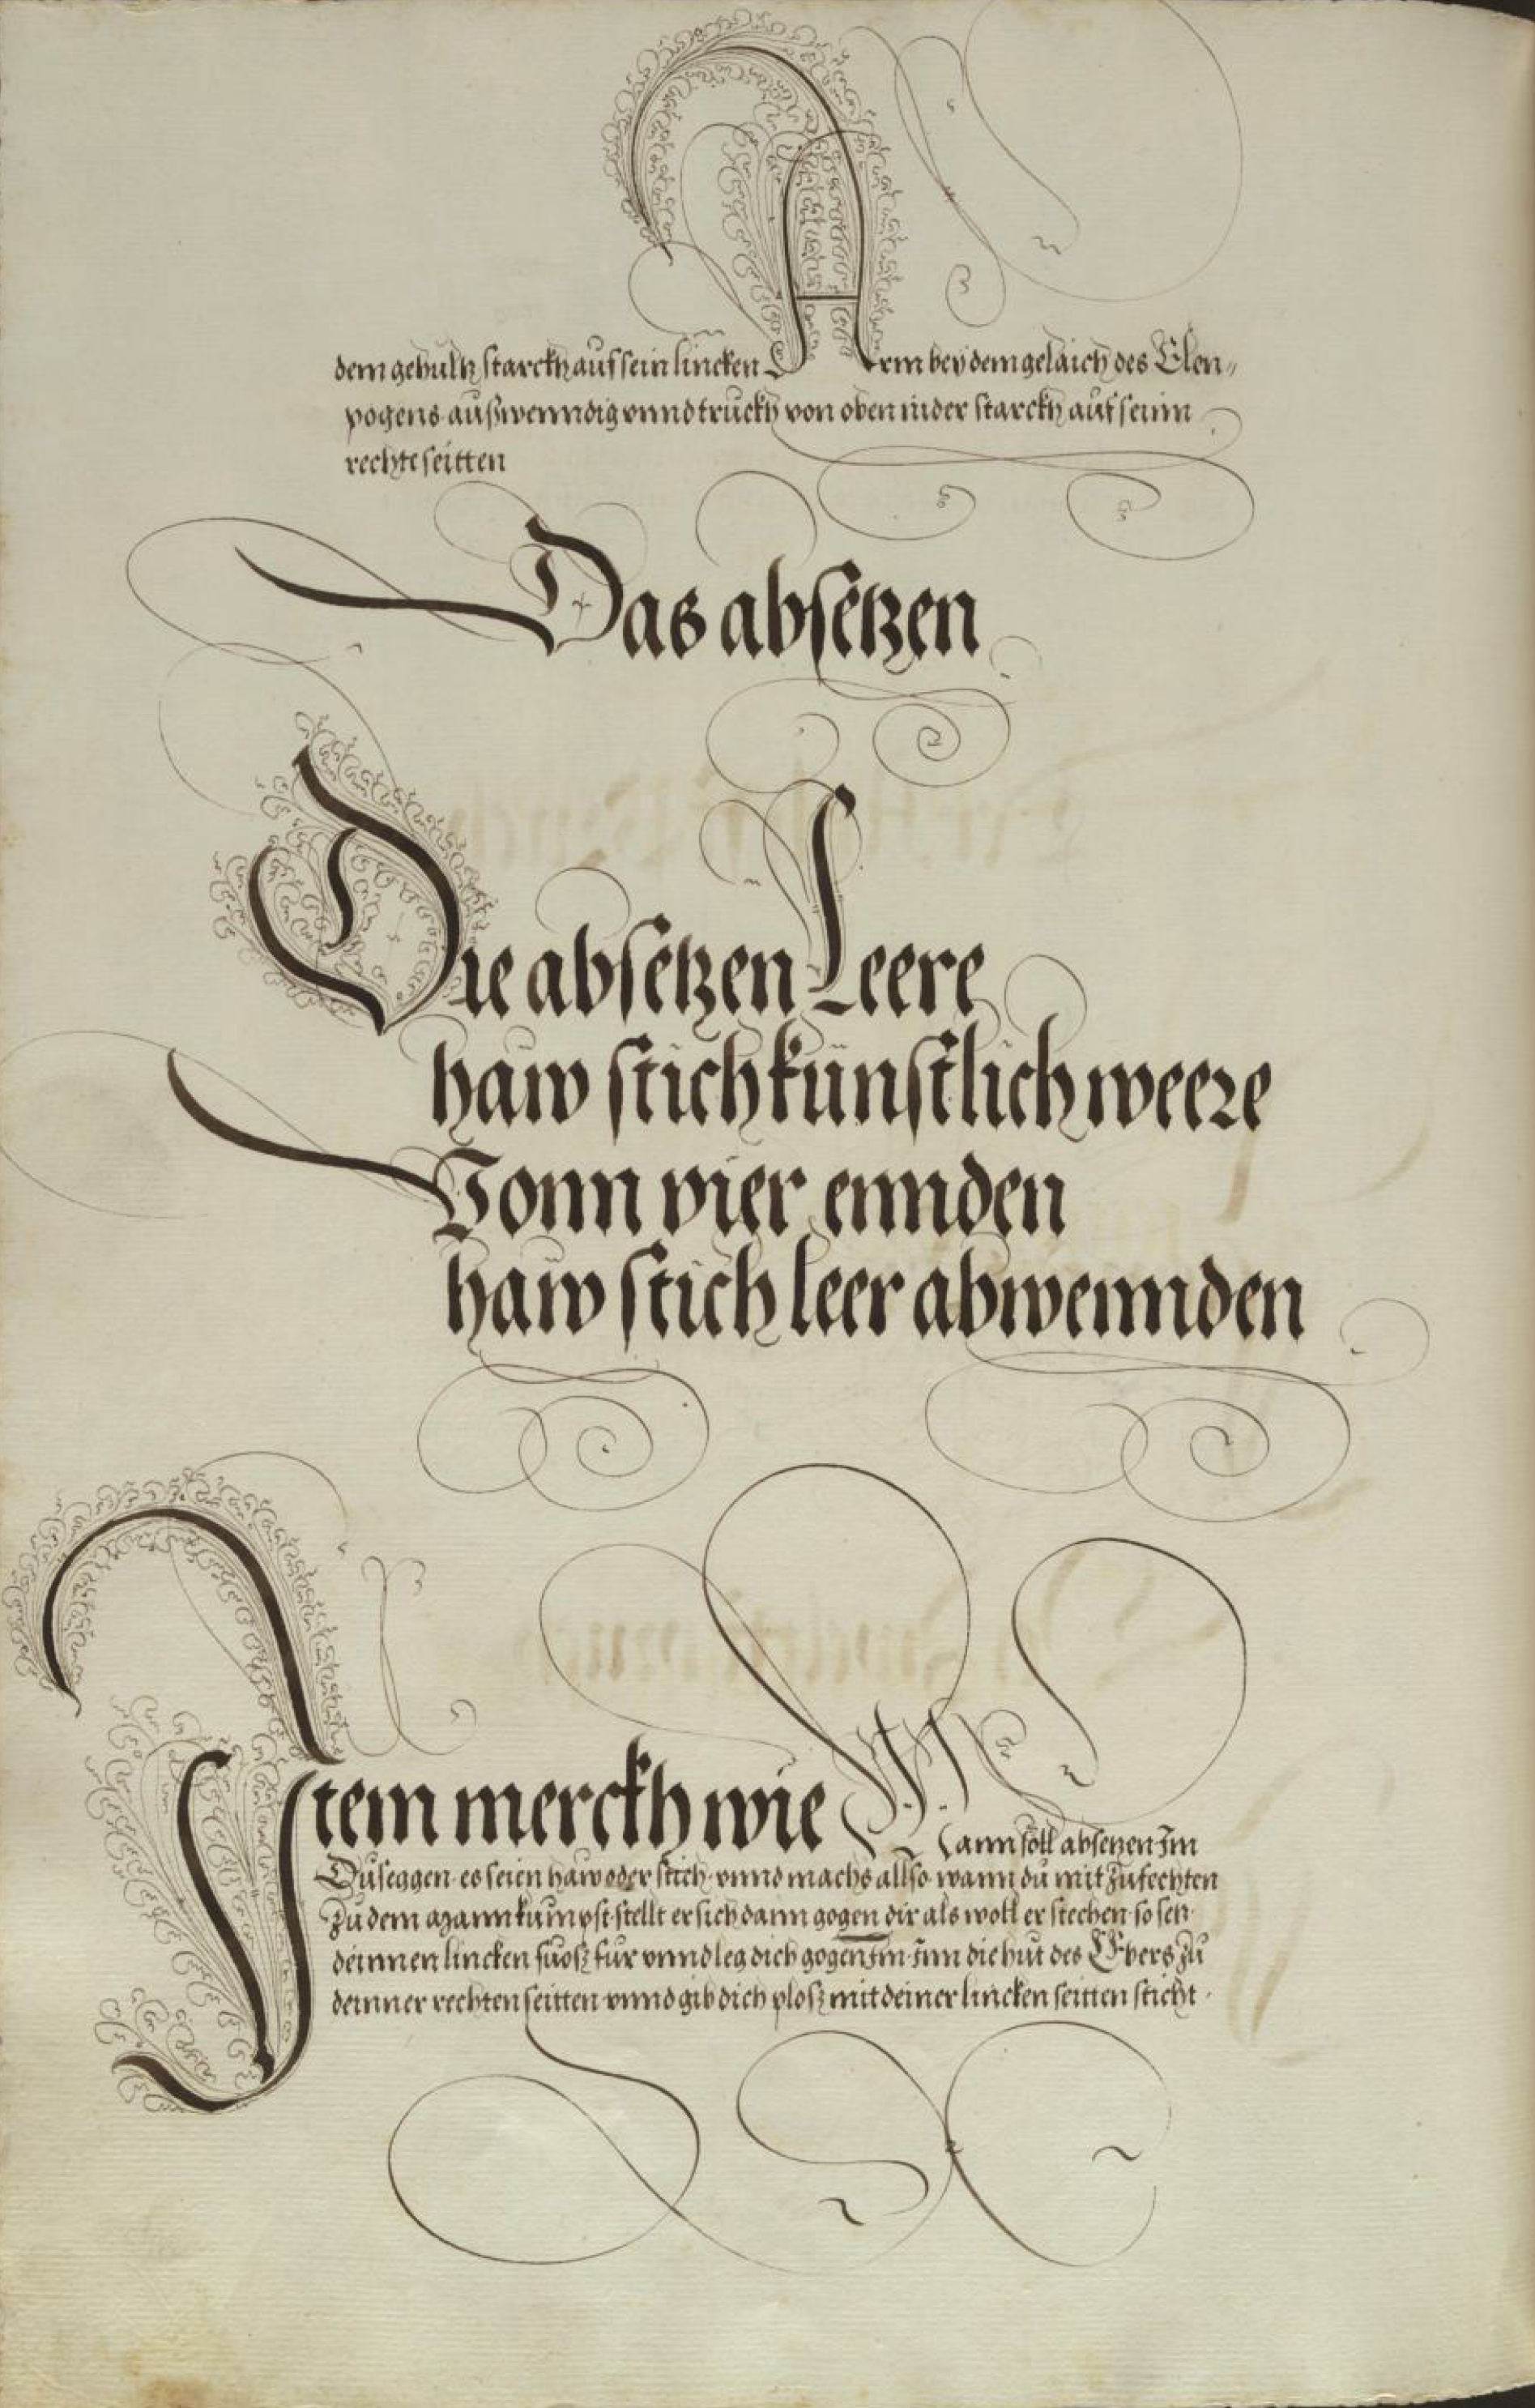 dem gehultz starckh auf sein lincken Arm bey dem gelaich des Elen„
pogens außwenndig vnnd truckh von oben nider starckh auf seinn
rechte seitten
Das absetzen
Die absetzen Leere
haw stich künstlich weere
Vonn vier ennden
haw stich leer abwennden
Item merckh wie
Mann soll absetzen Im
Duseggen es seien haw oder stich vnnd machs allso wann dü mit Züfechten
Zü dem mann kumpst stellt er sich dann gogen dir als woll er stechen so setz
deinnen lincken fuoß für vnnd leg dich gogen Im Inn die hut des Ebers Zü
deinner rechten seitten vnnd gib dich ploß mit deiner lincken seitten sticht